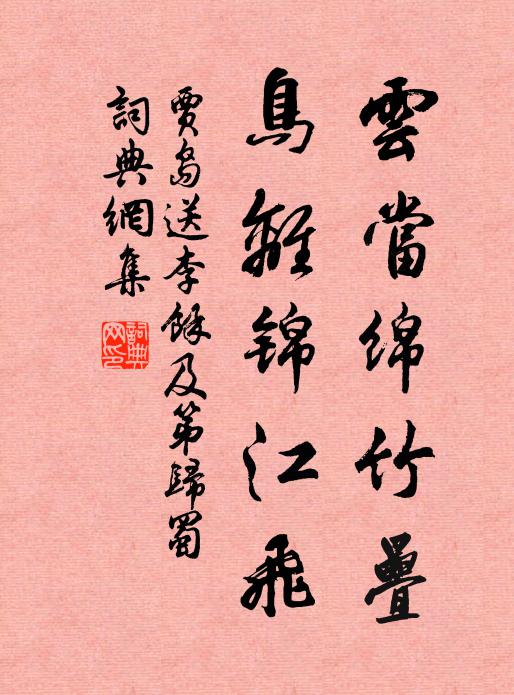 雲當綿竹疊
鳥離錦江飛
賈島送李餘及第歸蜀
詞典網集
詞典網印